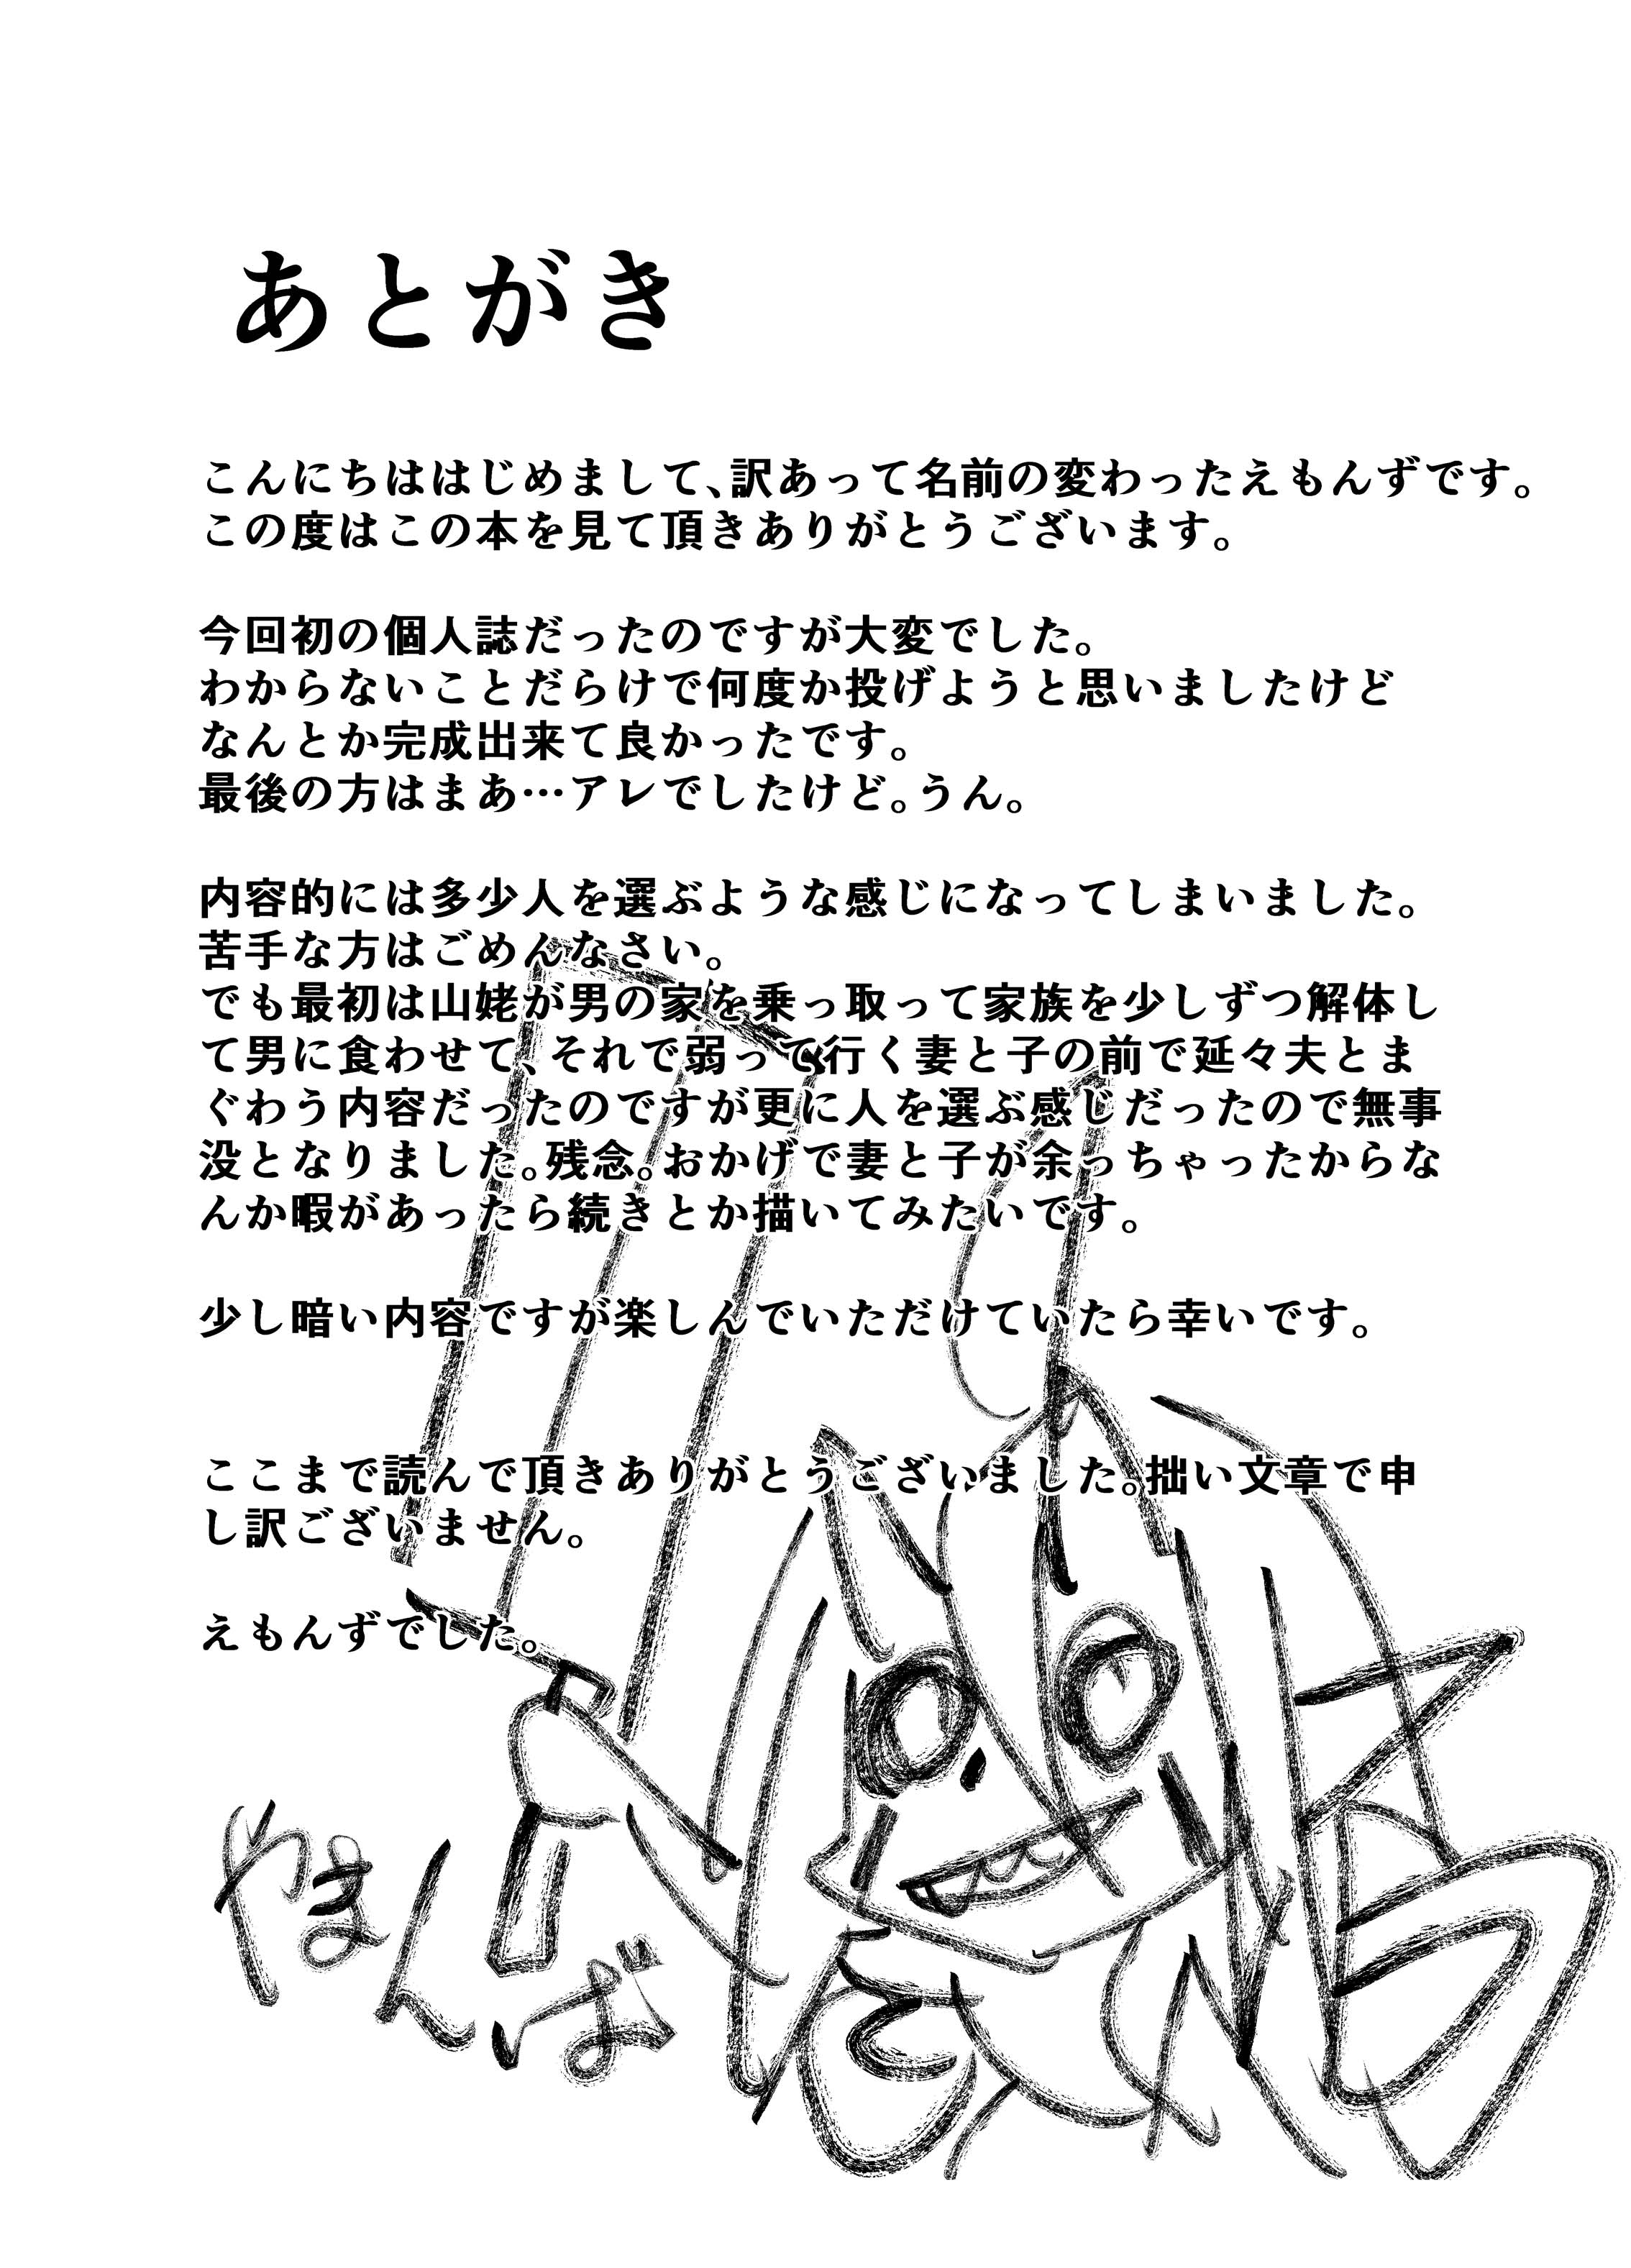 あとがき
こんにちははじめまして、訳あって名前の変わったえもんずです。
この度はこの本を見て頂きありがとうございます。
今回初の個人誌だったのですが大変でした。
わからないことだらけで何度か投げようと思いましたけど
なんとか完成出来て良かったです。
最後の方はまあ…アレでしたけど。うん。
内容的には多少人を選ぶような感じになってしまいました。
苦手な方はごめんなさい。
でも最初は山姥が男の家を乗っ取って家族を少しずつ解体し
て男に食わせて、それで弱って行く妻と子の前で延々夫とま
ぐわう内容だったのですが更に人を選ぶ感じだったので無事
没となりました。残念。おかげで妻と子が余っちゃったからな
んか暇があったら続きとか描いてみたいです。
少し暗い内容ですが楽しんでいただけていたら幸いです。
ここまで読んで頂きありがとうございました。拙い文章で申
し訳ございません。
えもんずでした。
やまんば